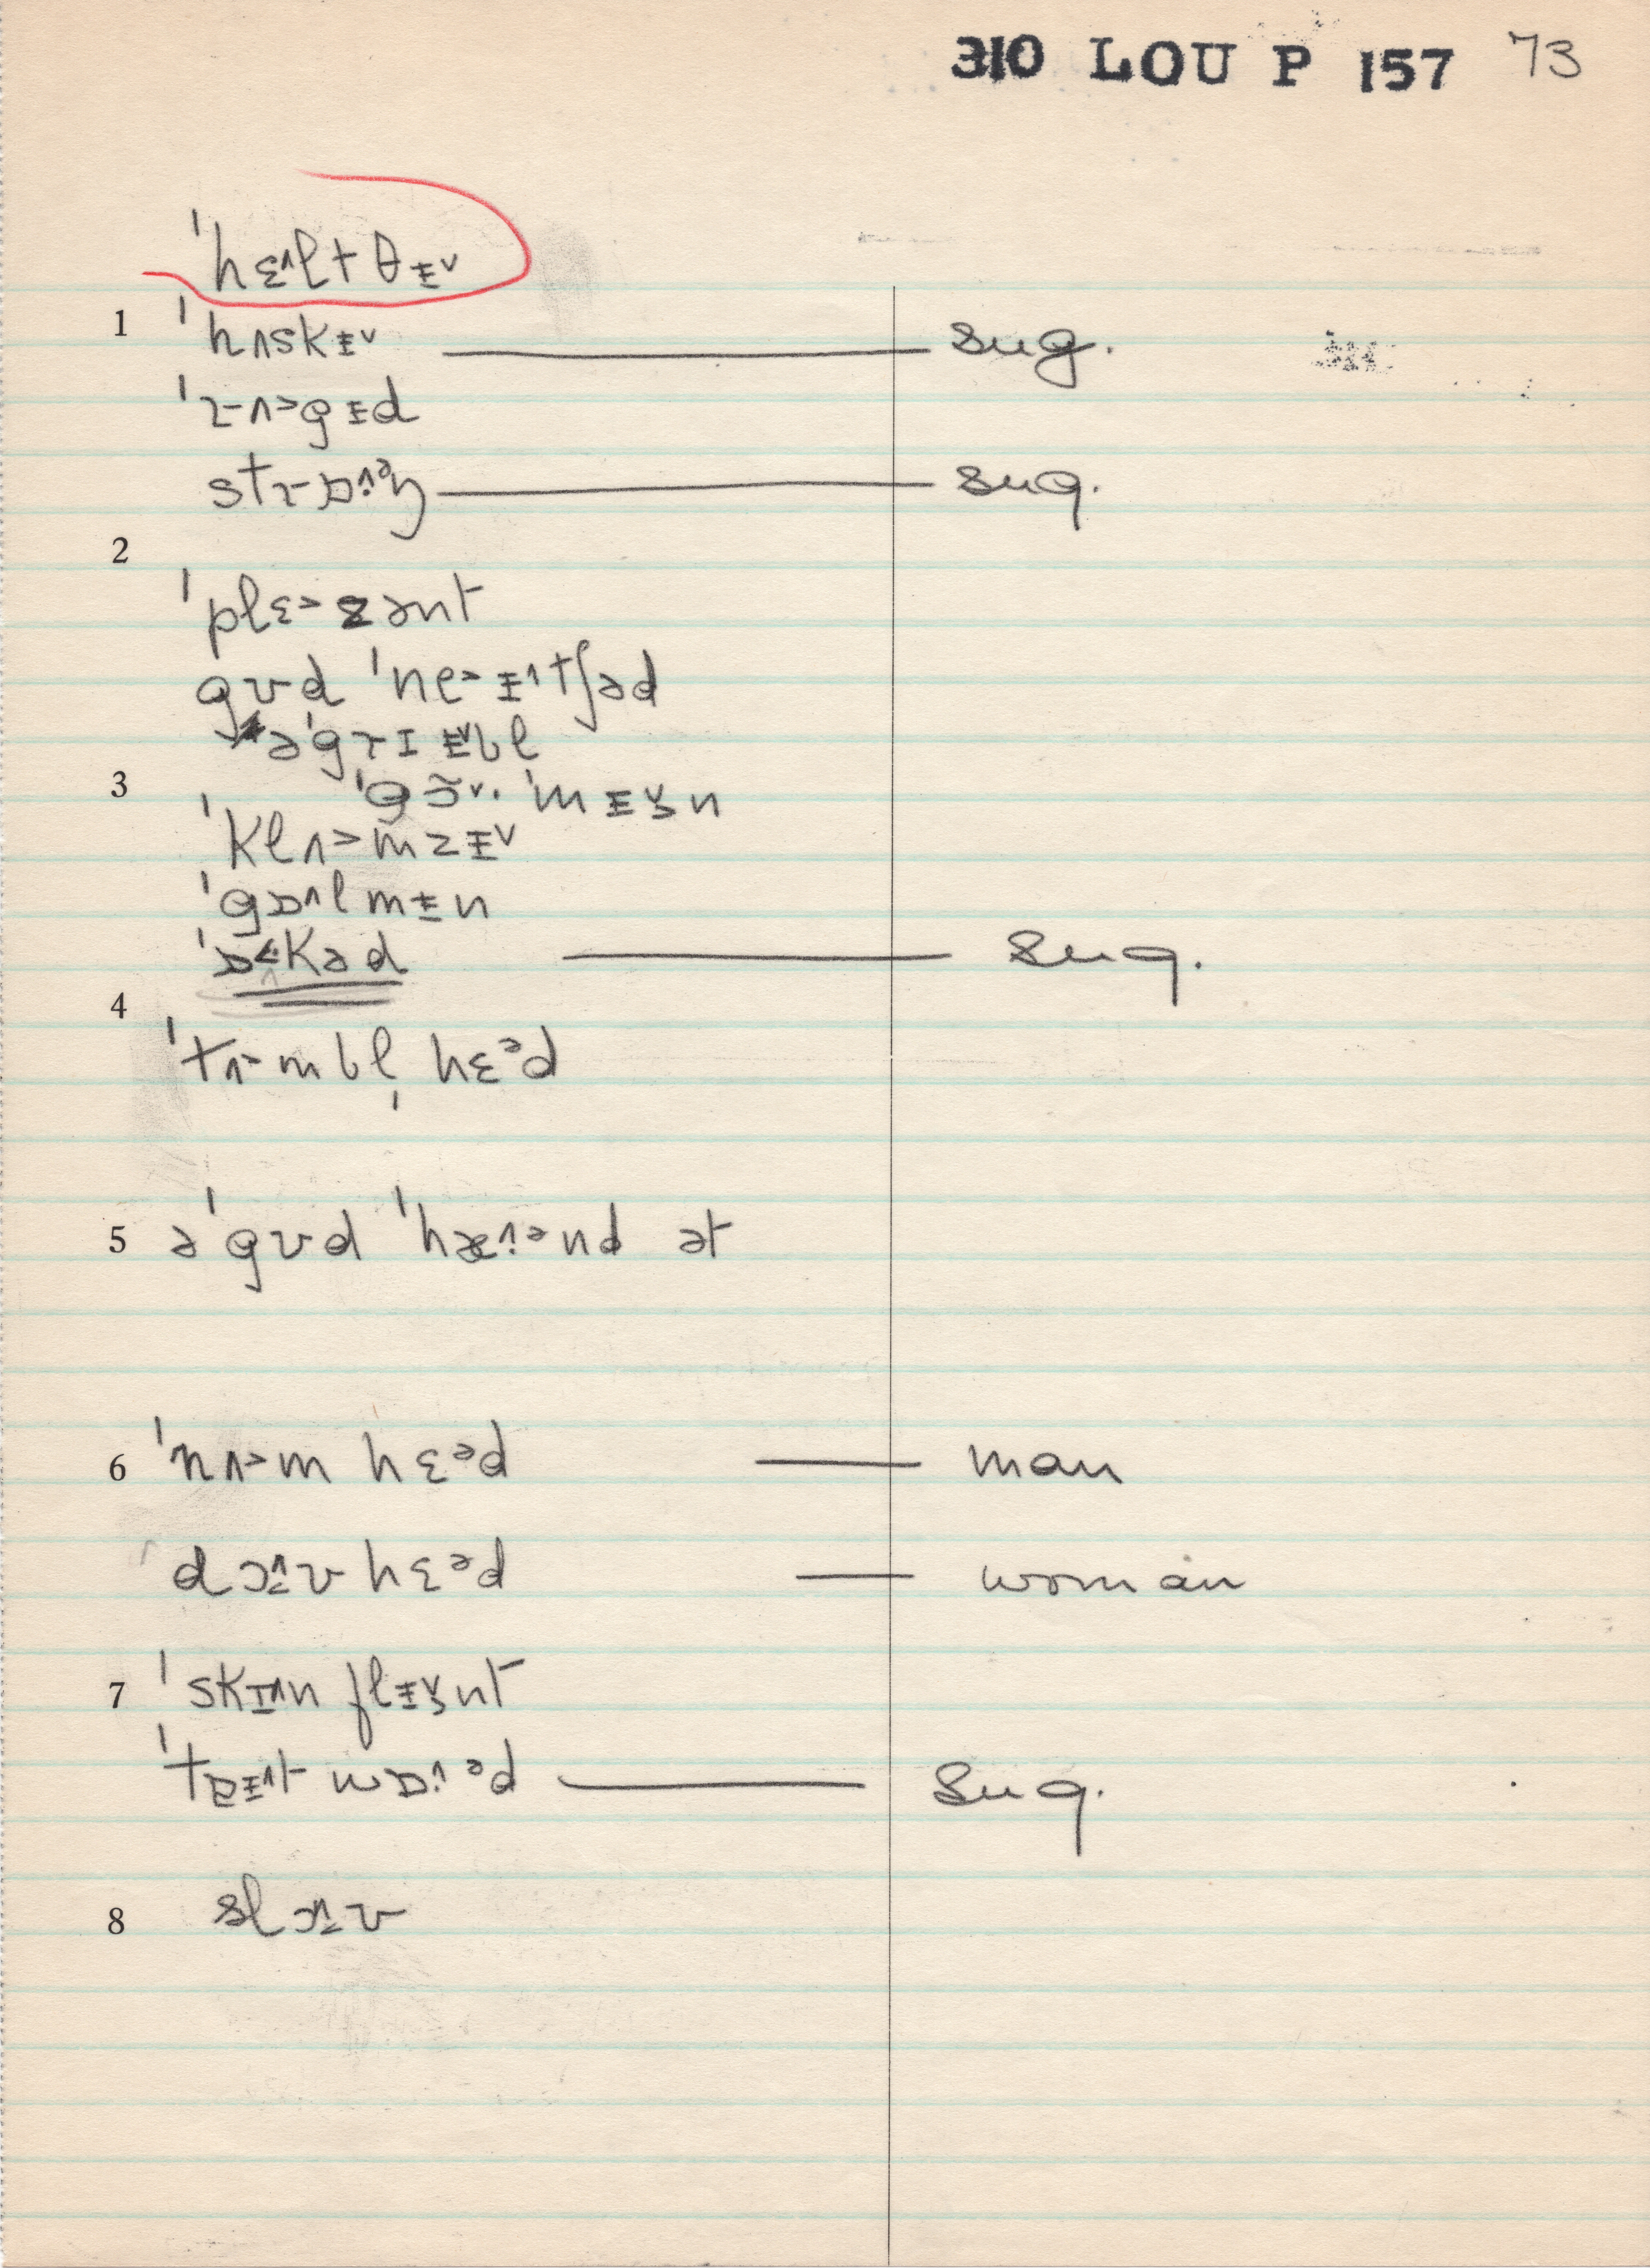 310 LOU P 157 73
ˈhɛ˄lt θɨ˅
1 ˈhʌskɨ˅ sug.
ˈrʌ˃gɨd
strɒ˄·ᵊŋ sug.
2
ˈplɛ˃zənt
gʊd ˈne˃ɨ˄tʃəd
əˈgrɪ ɨ˅bl
3 ˈgɔ̃˅· ˈmɨ˅̃n
ˈklʌ˃mzɨ˅
ˈgɒ˄lmɨn
ˈɒ˂kəd sug.
4
ˈtrʌmbl̩ hɛᵊd
5 əˈgʊd ˈhæ˄·ᵊnd ət
6 ˈnʌ˃m hɛᵊd man
dɔ˄ʊ hɛᵊd woman
7 ˈskɪ˄n flɨ˅̃nt
ˈtɐɨ˄t wɒ˄·ᵊd sug.
8 slɔ˄ʊ